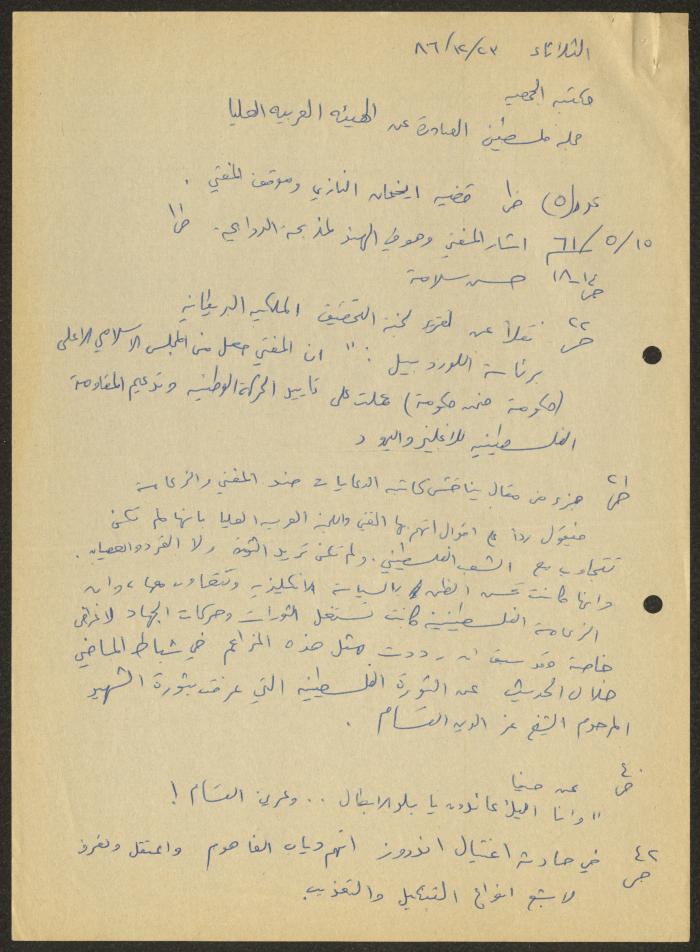 الثلاثاء ٨٦/١٢/٢٣
مكتبة الجمعية
مجلة فلسطين الصادرة عن الهيئه العربيه العليا
عدد (٥) ص١ قضيه ايخمان النازي وموقف المفتي .
٦١/٥/١٥ اشار المفتي وهو في الهند لمذبحة ص١
ص ١٤-١٨ حسن سلامة
ص ٢٢ نقلاً عن تقرير لجنة التحقيق الملكيه البريطانيه
برئاسة اللورد بيل : " ان المفتي جعل من المجلس الاسلامي الاعلى
(حكومة ضمن حكومة) عملت على تاييد الحركة الوطنيه وتدعيم المقاومة
الفلسطينيه للانغليز واليهود
ص ٢١ جزء من مقال يناقش كاتبه الدعايات ضد المفتي والزعامة
فيقول رداً على اقوال اتهم بها المفتي واللجنة العربيه العليا بانها لم تكن
تتجاوب مع الشعب الفلسطيني . ولم تكن تريد الثورة ولا التمرد والعصيان .
وانها كانت تحسن الظن بالسياسة الانكليزيه وتتعاون معها ، وان
الزعامة الفلسطينية كانت تستغل الثورات وحركات الجهاد لاغراض
خاصة وقد سبق ان رددت مثل هذه المزاعم في شباط الماضي
خلال الحديث عن الثورة الفلسطينيه التي عرفت بثورة الشهيد
المرحوم الشيخ عز الدين القسام .
ص ٤٠ عن
" وانا اليك عائدون يا بلد الابطال .. وعرين القسام !
ص ٤٢ في حادثة اغتيال اندروز اتهم ذياب الفاهوم واعتقل وتعرض
لابشع انواع التنكيل والتعذيب